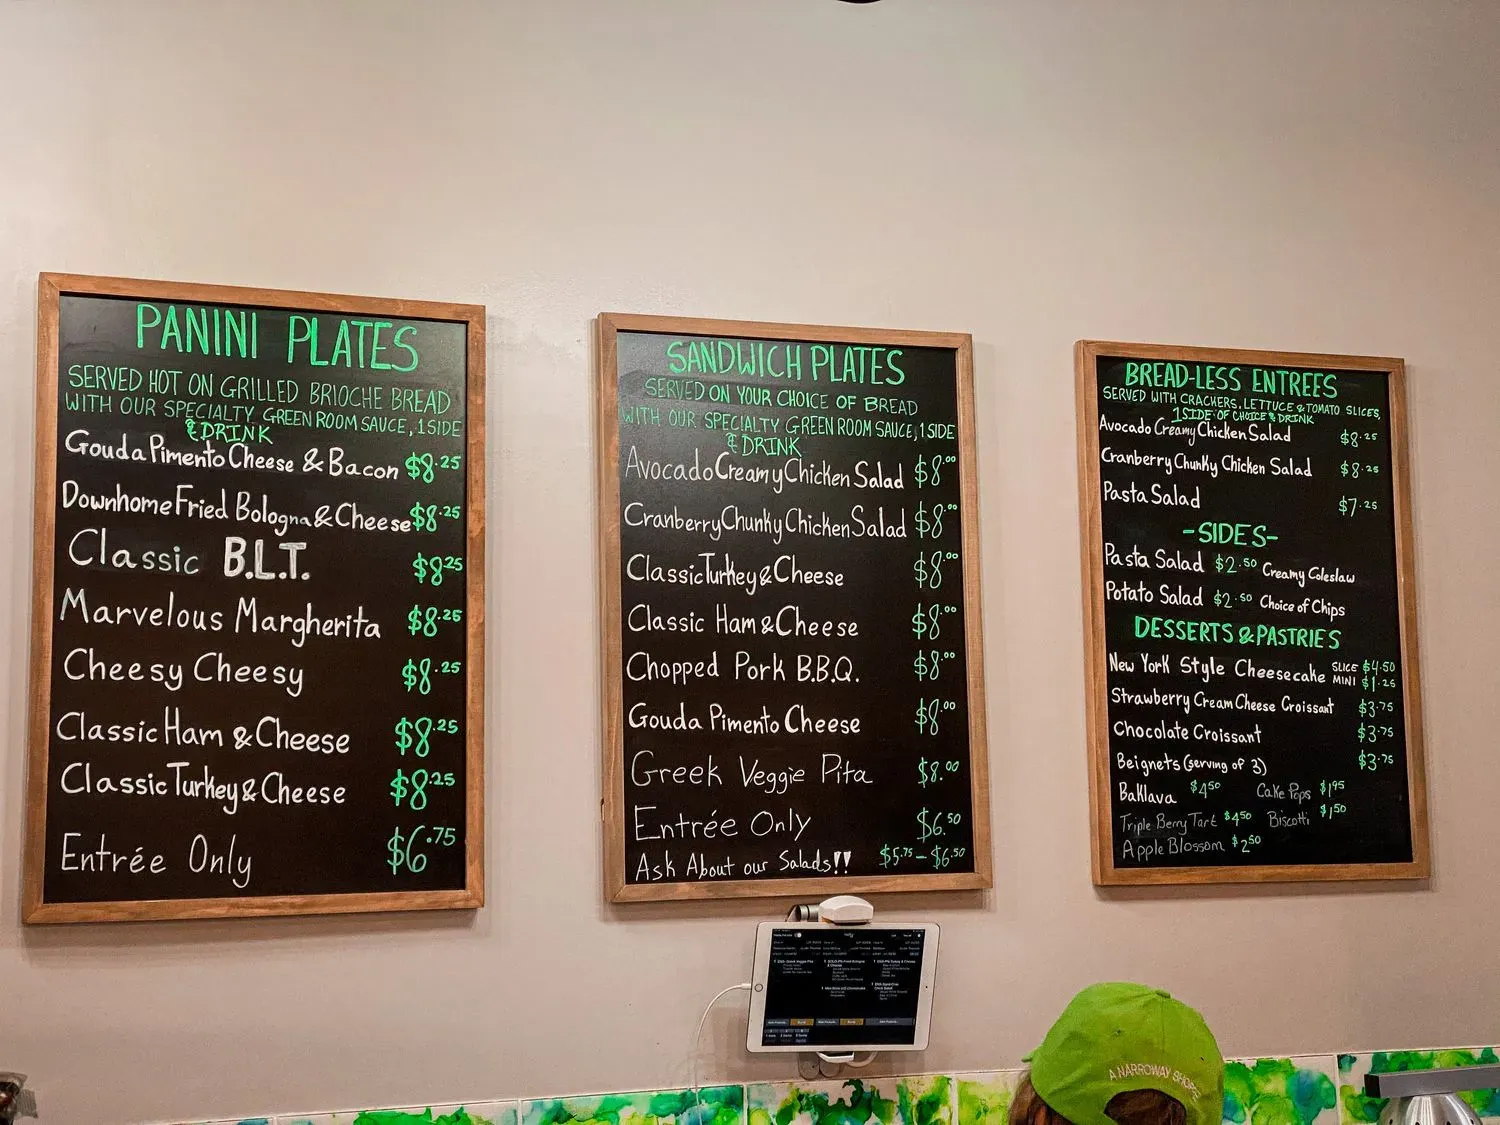 PANINI PLATES
SERVED HOT ON GRILLED BRIOCHE BREAD
WITH OUR SPECIALTY GREEN ROOM SAUCE, 1 SIDE
& DRINK
Gouda Pimento Cheese & Bacon $8.25
Downhome Fried Bologna & Cheese $8.25
Classic B.L.T. $8.25
Marvelous Margherita $8.25
Cheesy Cheesy $8.25
Classic Ham & Cheese $8.25
Classic Turkey & Cheese $8.25
Entrée Only $6.75
SANDWICH PLATES
SERVED ON YOUR CHOICE OF BREAD
WITH OUR SPECIALTY GREEN ROOM SAUCE, 1 SIDE
& DRINK
Avocado Creamy Chicken Salad $8.00
Cranberry Chunky Chicken Salad $8.00
Classic Turkey & Cheese $8.00
Classic Ham & Cheese $8.00
Chopped Pork B.B.Q. $8.00
Gouda Pimento Cheese $8.00
Greek Veggie Pita $8.00
Entrée Only $6.50
Ask About our Salads!! $5.75 - $6.50
BREAD-LESS ENTREES
SERVED WITH CRACKERS, LETTUCE & TOMATO SLICES,
1 SIDE OF CHOICE & DRINK
Avocado Creamy Chicken Salad $8.25
Cranberry Chunky Chicken Salad $8.25
Pasta Salad $7.25
-SIDES-
Pasta Salad $2.50 Creamy Coleslaw
Potato Salad $2.50 Choice of Chips
DESSERTS & PASTRIES
New York Style Cheesecake SLICE $4.50
MINI $1.25
Strawberry Cream Cheese Croissant $3.75
Chocolate Croissant $3.75
Beignets (serving of 3) $3.75
Baklava $4.50 Cake Pops $1.95
Triple Berry Tart $4.50 Biscotti $1.50
Apple Blossom $2.50
A NARROWAY